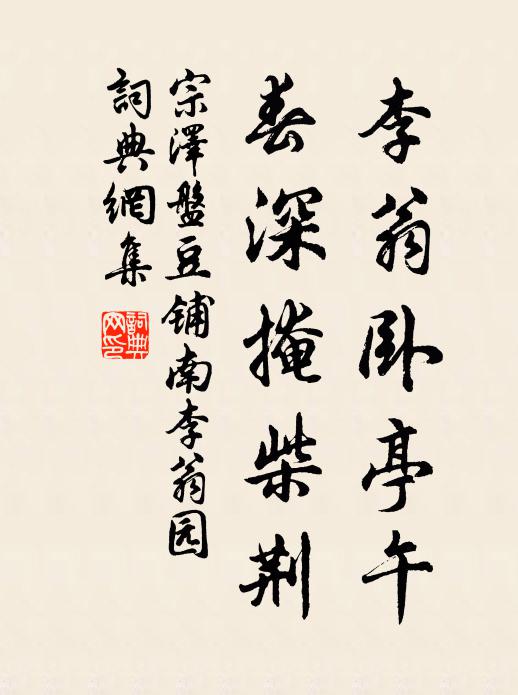 李翁卧亭午
春深掩柴荆
宗澤盤豆鋪南李翁园
詞典網集
詞典网印